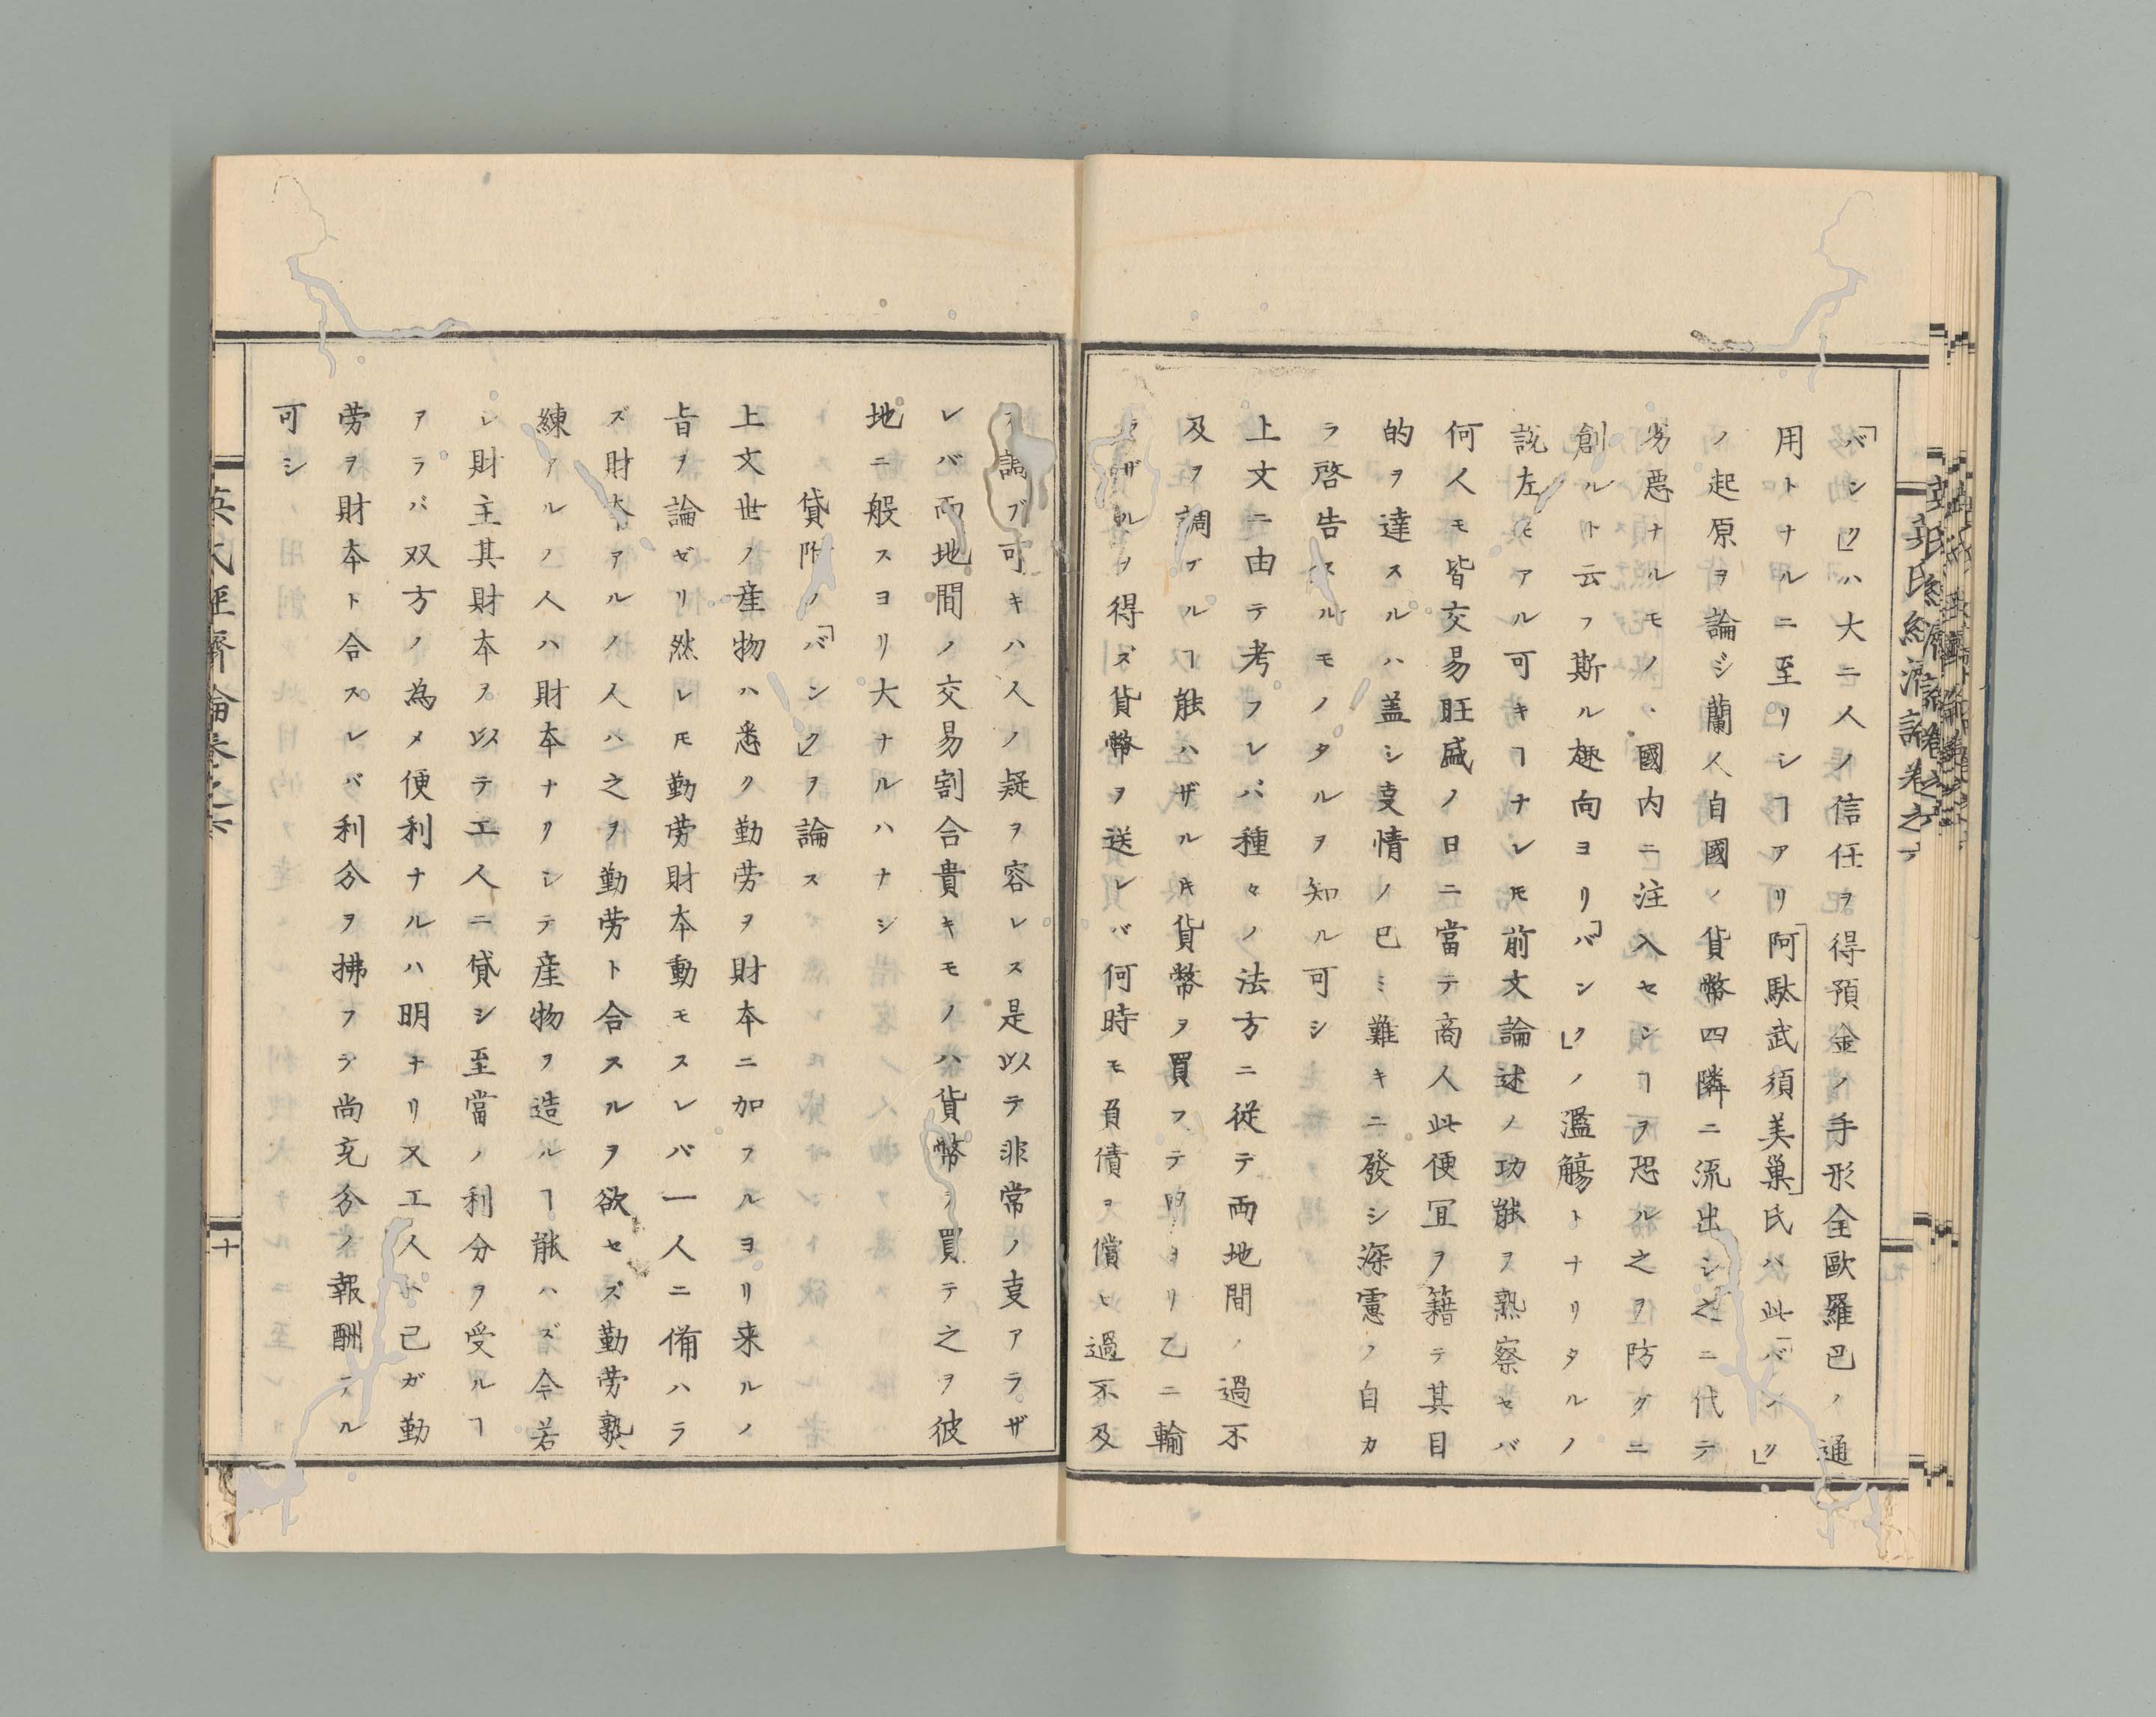 「バンク」ハ大ニ人ノ信任ヲ得預金ノ手形全歐羅巴ノ通
用トナルニ至リシヿアリ阿駄武須美巣氏ハ此「バンク」
ノ起原ヲ論ジ蘭人自國ノ貨幣四隣ニ流出シ之ニ代テ
劣惡ナルモノヽ國内ニ注入センヿヲ恐ル之ヲ防グニ
創ルト云フ斯ル趣向ヨリ「バンク」ノ濫觴トナリタルノ
説左モアル可キヿナレ𪜈前文論述ノ功能ヲ熟察セバ
何人モ皆交易旺盛ノ日ニ當テ商人此便宜ヲ籍テ其目
的ヲ達スルハ蓋シ叓情ノ已ミ難キニ發シ深慮ノ自カ
ラ啓告スルモノタルヲ知ル可シ
上文ニ由テ考フレバ種々ノ法方ニ従テ両地間ノ過不
及ヲ調ブルヿ能ハザル𪜈貨幣ヲ買フテ甲ヨリ乙ニ輸
ラザルヲ得ズ貨幣ヲ送レバ何時モ負債ヲ償ヒ過不及
ヲ調ブ可キハ人ノ疑ヲ容レス是以テ非常ノ叓アラザ
レバ両地間ノ交易割合貴キモノハ貨幣ヲ買テ之ヲ彼
地ニ般スヨリ大ナルハナシ
貸附ノ「バンク」ヲ論ス
上文世ノ産物ハ悉ク勤労ヲ財本ニ加フルヨリ来ルノ
旨ヲ論ゼリ然レ𪜈勤労財本動モスレバ一人ニ備ハラ
ズ財本アルノ人ハ之ヲ勤労ト合スルヲ欲セズ勤労熟
練アルノ人ハ財本ナクシテ産物ヲ造ルヿ能ハズ今若
シ財主其財本ヲ以テ工人ニ貸シ至當ノ利分ヲ受ルヿ
アラバ双方ノ為メ便利ナルハ明ナリ又工人ハ己ガ勤
労ヲ財本ト合スレバ利分ヲ拂フテ尚充分ノ報酬テル
可シ
英氏經濟論卷之六
十